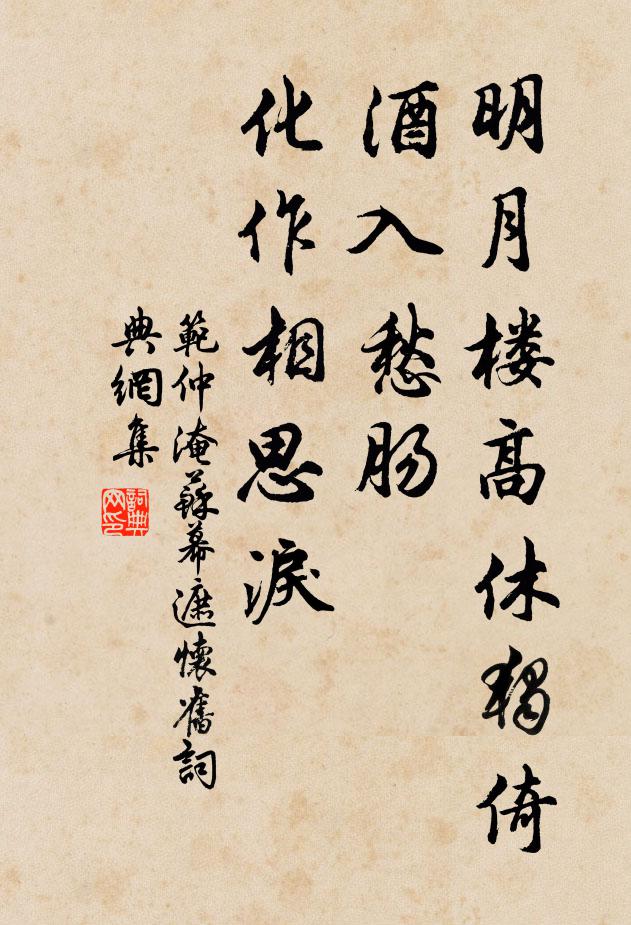 明月楼高休獨倚
酒入愁肠
化作相思淚
範仲淹蘇幕遮懷舊詞
典網集
詞典
网印